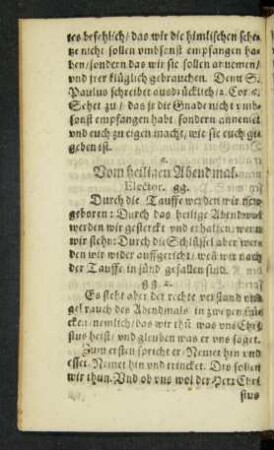 tes befehlich/ das wir die himlischen sche-
tze nicht sollen vmbsonst empfangen ha-
ben/ sondern das wir sie sollen annemen/
vnd jrer klüglich gebrauchen. Denn S.
Paulus schreibet ausdrücklich/ 2. Cor 6.
Sehet zu/ das je die Gnade nicht vmb-
sonst empfangen habt sondern annemet
vnd euch zu eigen macht, wie sie euch ge-
geben ist.
Vom heiligen Abendmal.
Elector. gg.
Durch die Tauffe werden wir new
geboren: Durch das heilige Abendmal
werden wir gesterckt vnd erhalten, wenn
wir stehn: Durch die Schlüssel aber wer-
den wir wider auffgericht, weñ wir nach
der Tauffe in sünd gefallen sind.
gg. 2.
Es steht aber der rechte verstand vnd
gebrauch des Abendmals in zweyen stü-
cken/ nemlich/ das wir thũ was vns Chri-
stus heist/ vnd gleuben was er vns saget.
Zum ersten spricht er/ Nemet hin vnd
esset/ Nemet hin vnd trincket. Dis sollen
wir thun. Vnd ob vns wol der Herr Chri
stus